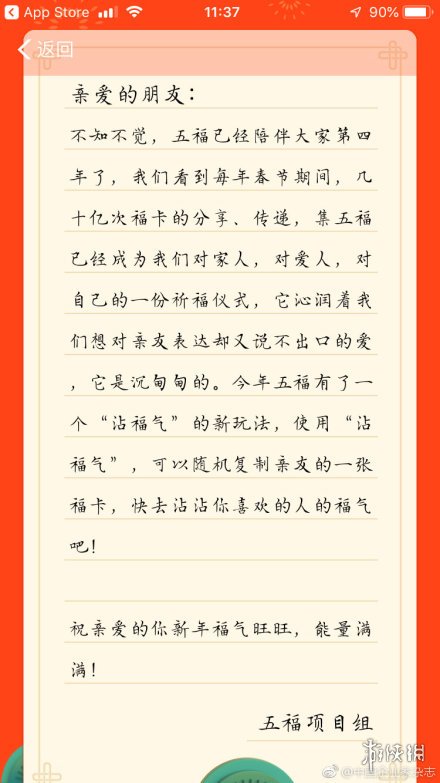 App Store 11:37 90%
返回
亲爱的朋友：
不知不觉，五福已经陪伴大家第四
年了，我们看到每年春节期间，几
十亿次福卡的分享、传递，集五福
已经成为我们对家人，对爱人，对
自己的一份祈福仪式，它沁润着我
们想对亲友表达却又说不出口的爱
，它是沉甸甸的。今年五福有了一
个“沾福气”的新玩法，使用“沾
福气”，可以随机复制亲友的一张
福卡，快去沾沾你喜欢的人的福气
吧！
祝亲爱的你新年福气旺旺，能量满
满！
五福项目组
游侠网